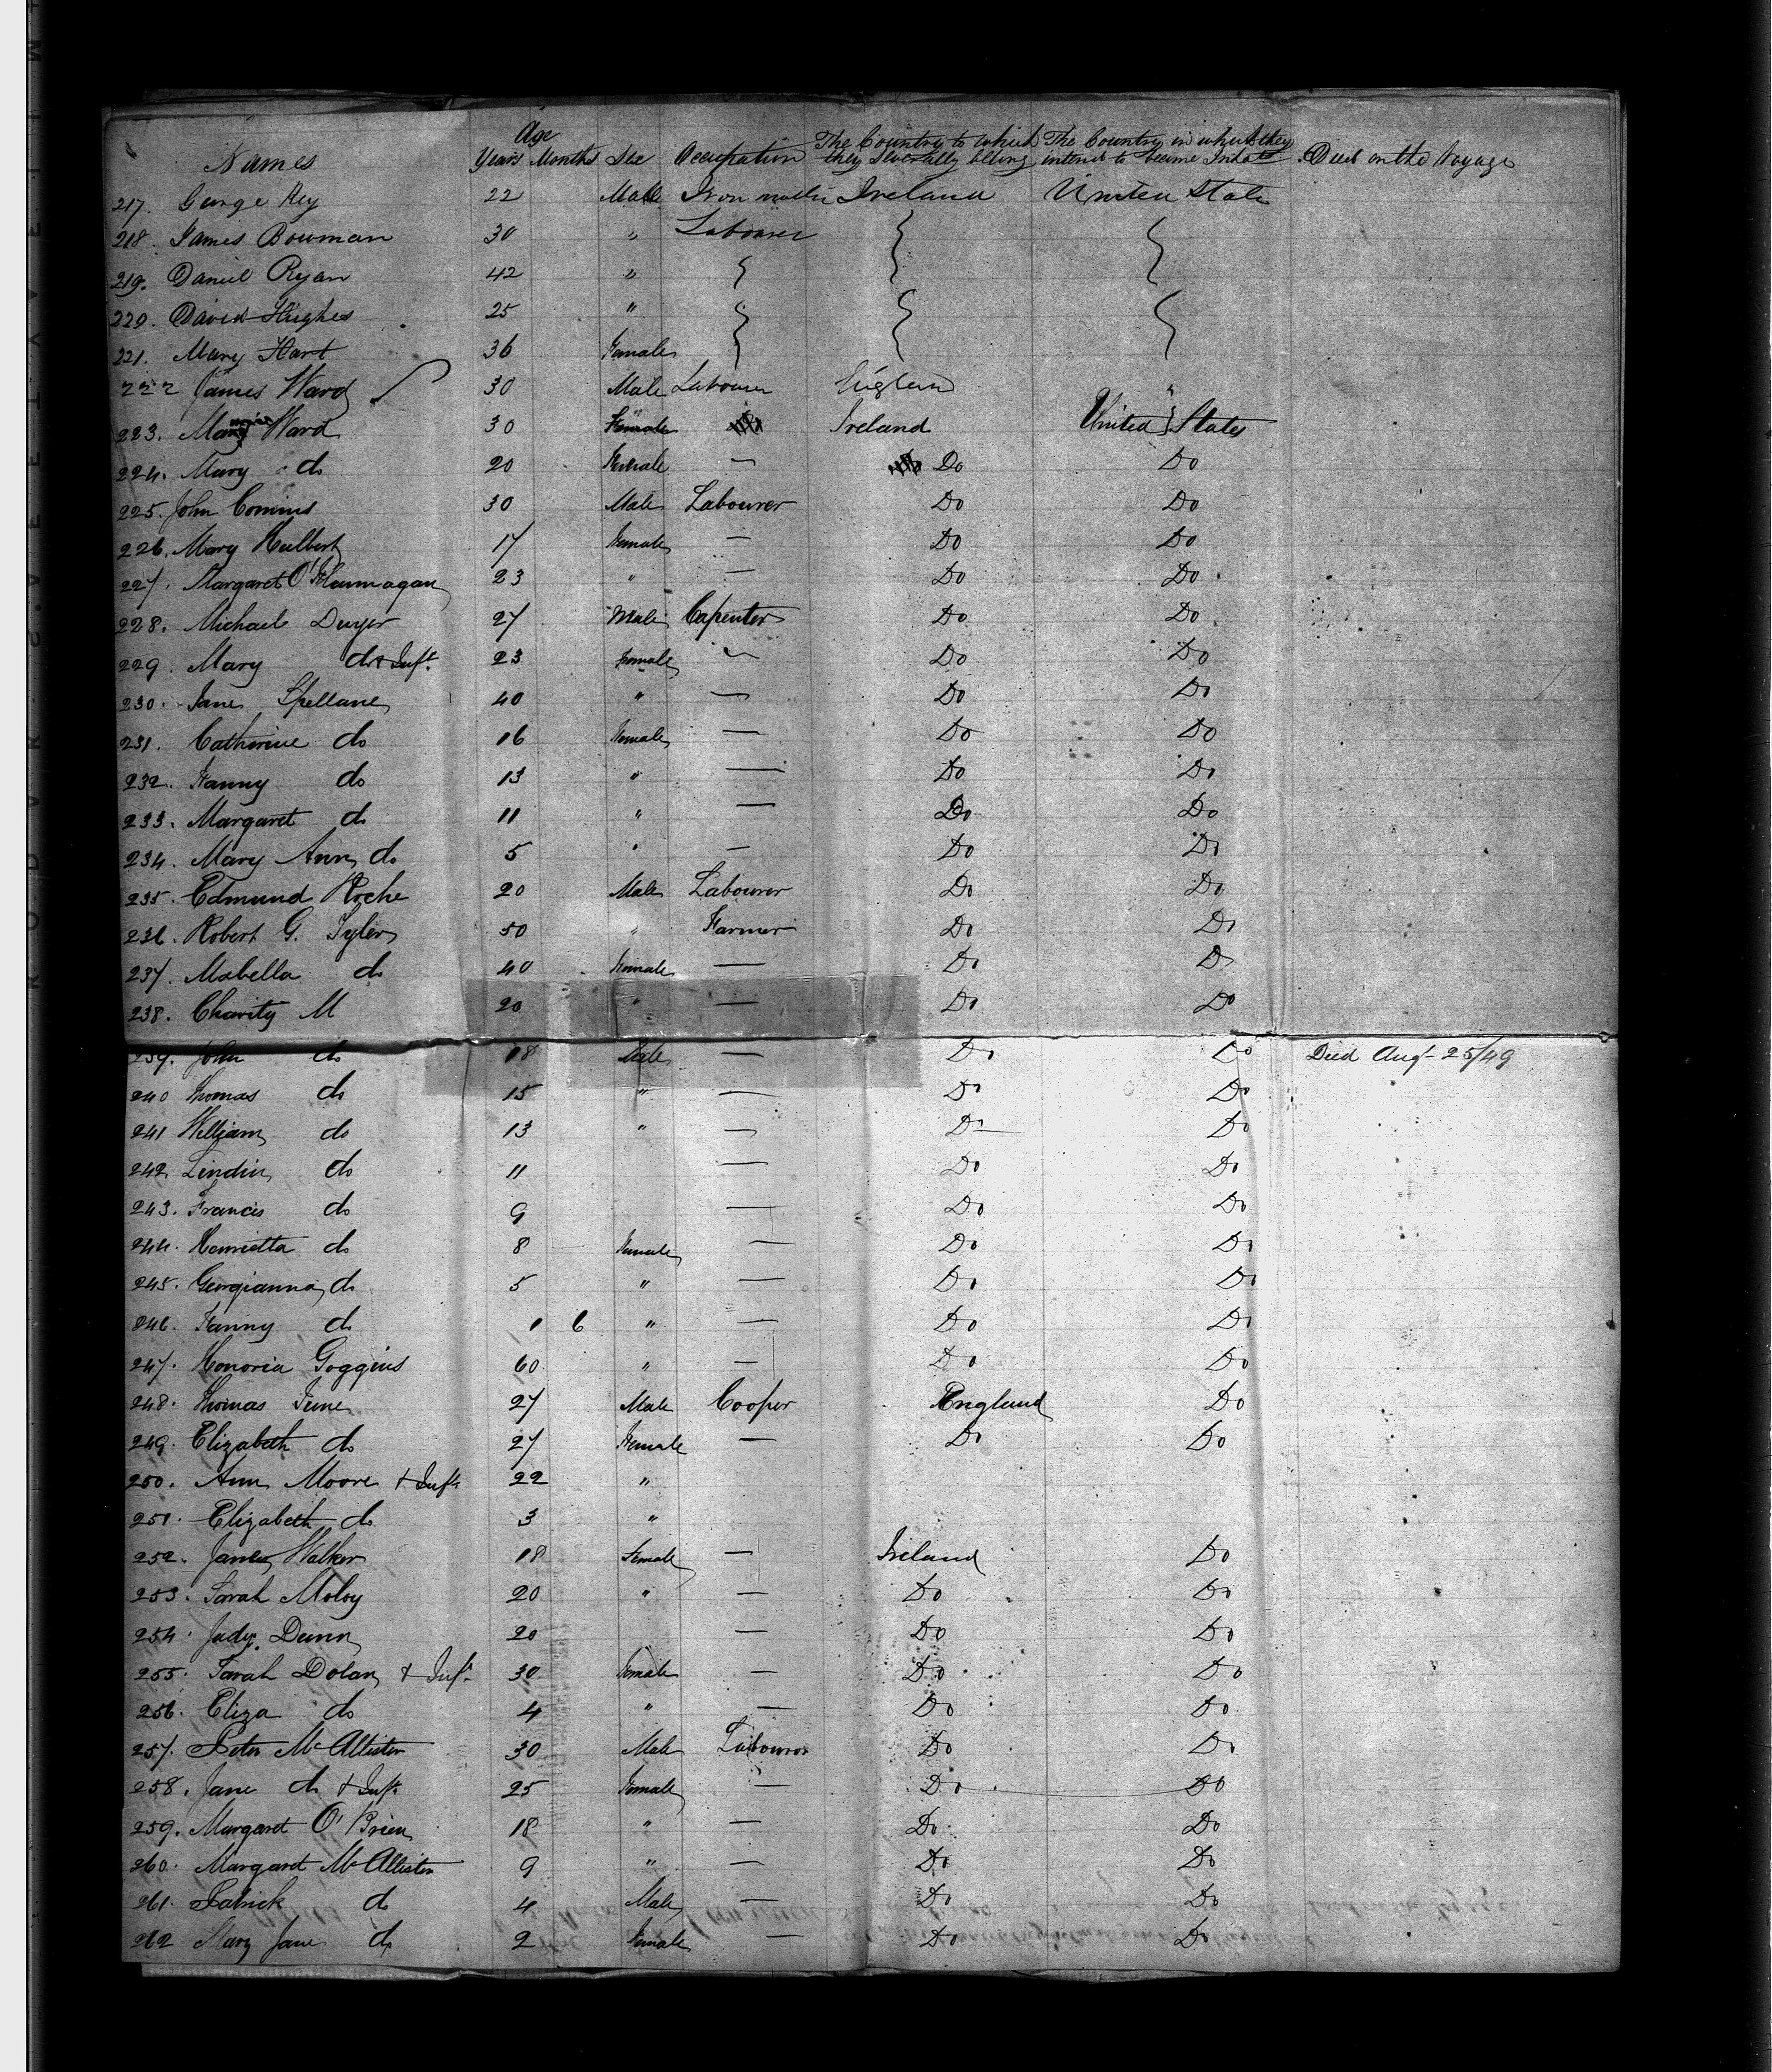 Names Age Years Months Sex Occupation The Country to which they severally belong The Country in which they intend to become Inhabts Died on the Voyage
217. George Key 22 Male Iron Ireland United States
218. James Bowman 30 " Labourer
219. Daniel Ryan 42 "
220. David Hughes 25 "
221. Mary Hart 36 Female
222 James Ward 30 Male Labourer England "
223. Ward 30 Female Ireland United States
224. Mary do 20 Female — Do Do
225. John Comins 30 Male Labourer Do Do
226. Mary Hulbert 17 Female — Do Do
227. Margaret 23 " — Do Do
228. Michael Dwyer 27 Male Capenter Do Do
229. Mary do + Inft. 23 Female — Do Do
230. Jane Spellane 40 " — Do Do
231. Catherine do 16 Female — Do Do
232. Fanny do 13 " — Do Do
233. Margaret do 11 " — Do Do
234. Mary Ann do 5 " — Do Do
235. Edmund Roche 20 Male Labourer Do Do
236. Robert G. Tyler 50 " Farmer Do Do
237. Mabella do 40 Female — Do Do
238. Charity M 20 " — Do Do
239. John do 18 Male — Do Do Died Augt 25/49
240 Thomas do 15 " — Do Do
241 William do 13 " — Do Do
242. do 11 — Do Do
243. Francis do 9 — Do Do
244. Henrietta do 8 Female — Do Do
245. Georgianna do 5 " — Do Do
246. Fanny do 1 6 " — Do Do
247. Honoria Goggins 60 " — Do Do
248. Thomas 27 Male Cooper England Do
249. Elizabeth do 27 Female — Do Do
250. Ann Moore + Inft 22 "
251. Elizabeth do 3 "
252. Walker 18 Female — Ireland Do
253. Sarah Moloy 20 " — Do Do
254. Judy Dunn 20 — Do Do
255. Sarah Dolan + Inft. 30 Female — Do Do
256. Eliza do 4 " — Do Do
257. Peter McAllister 30 Male Labourer Do Do
258. Jane do + Inft 25 Female — Do Do
259. Margaret O'Brien 18 " — Do Do
260. Margaret McAllister 9 " — Do Do
261. Patrick do 4 Male — Do Do
262 Mary Jane do 2 Female — Do Do